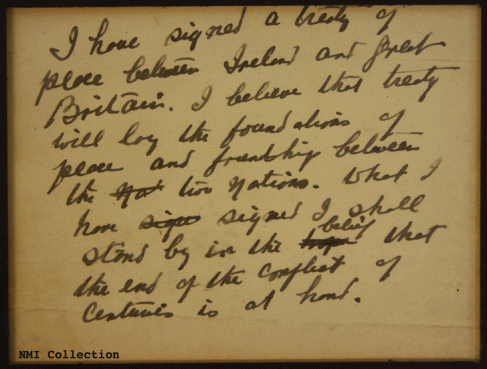 I have signed a treaty of
peace between Ireland and Great
Britain. I believe that treaty
will lay the foundations of
peace and friendship between
the Nat two Nations. What I
have sign signed I shall
belief
stand by in the hope that
the end of the conflict of
centuries is at hand.
NMI Collection